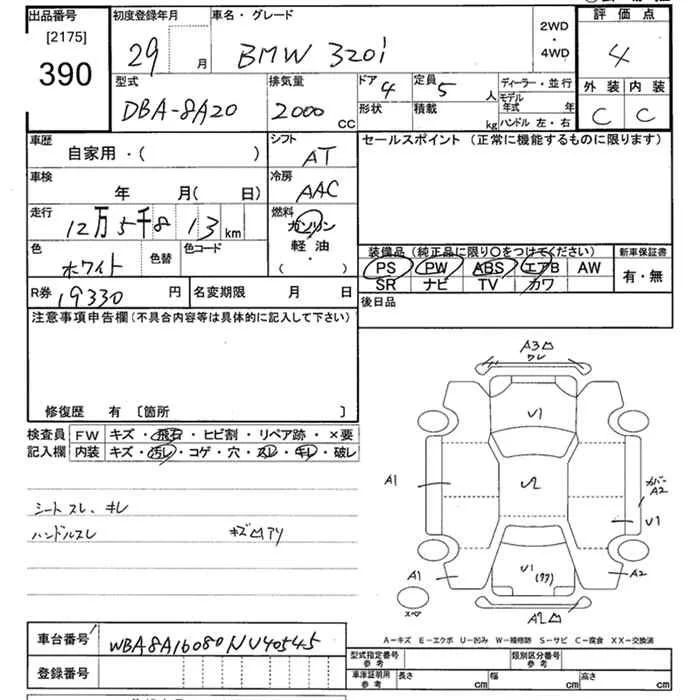 出品番号 初度登録年月 車名・グレード 2WD・4WD 評価点
[2175]
390 29 月 BMW 320i 4
型式 排気量 ドア 4 定員 5 人 ディーラー・並行 外装 内装
DBA-8A20 2000 CC 形状 積載 kg モデル年式 年 C C
ハンドル 左・右
車歴 シフト セールスポイント (正常に機能するものに限ります)
自家用・( ) AT
車検 冷房
年 月 ( 日) AAC
走行 燃料
12万5千8 13 km ガソリン
軽油
・( )
色 色替 色コード 装備品 (純正品に限り○をつけてください) 新車保証書
ホワイト PS PW ABS エアB AW 有・無
SR ナビ TV カワ
R券 19330 円 名変期限 月 日 後日品
注意事項申告欄 (不具合内容等は具体的に記入して下さい)
修復歴 有 〔箇所 〕
検査員 FW キズ・飛石・ヒビ割・リペア跡・×要
記入欄 内装 キズ・汚レ・コゲ・穴・スレ・キレ・破レ
シートスレ、キレ
ハンドルスレ キズ凹アリ
A3凹
ワレ
U1
A1
U2
カバー
A2
U1
A1
U1
A2
スペア
A2凹
車台番号 WBA8A16080NU40545
A-キズ E-エクボ U-凹み W-補修跡 S-サビ C-腐食 XX-交換済
登録番号 型式指定番号 参考 類別区分番号 参考
車庫証明用 参考 長さ cm 幅 cm 高さ cm